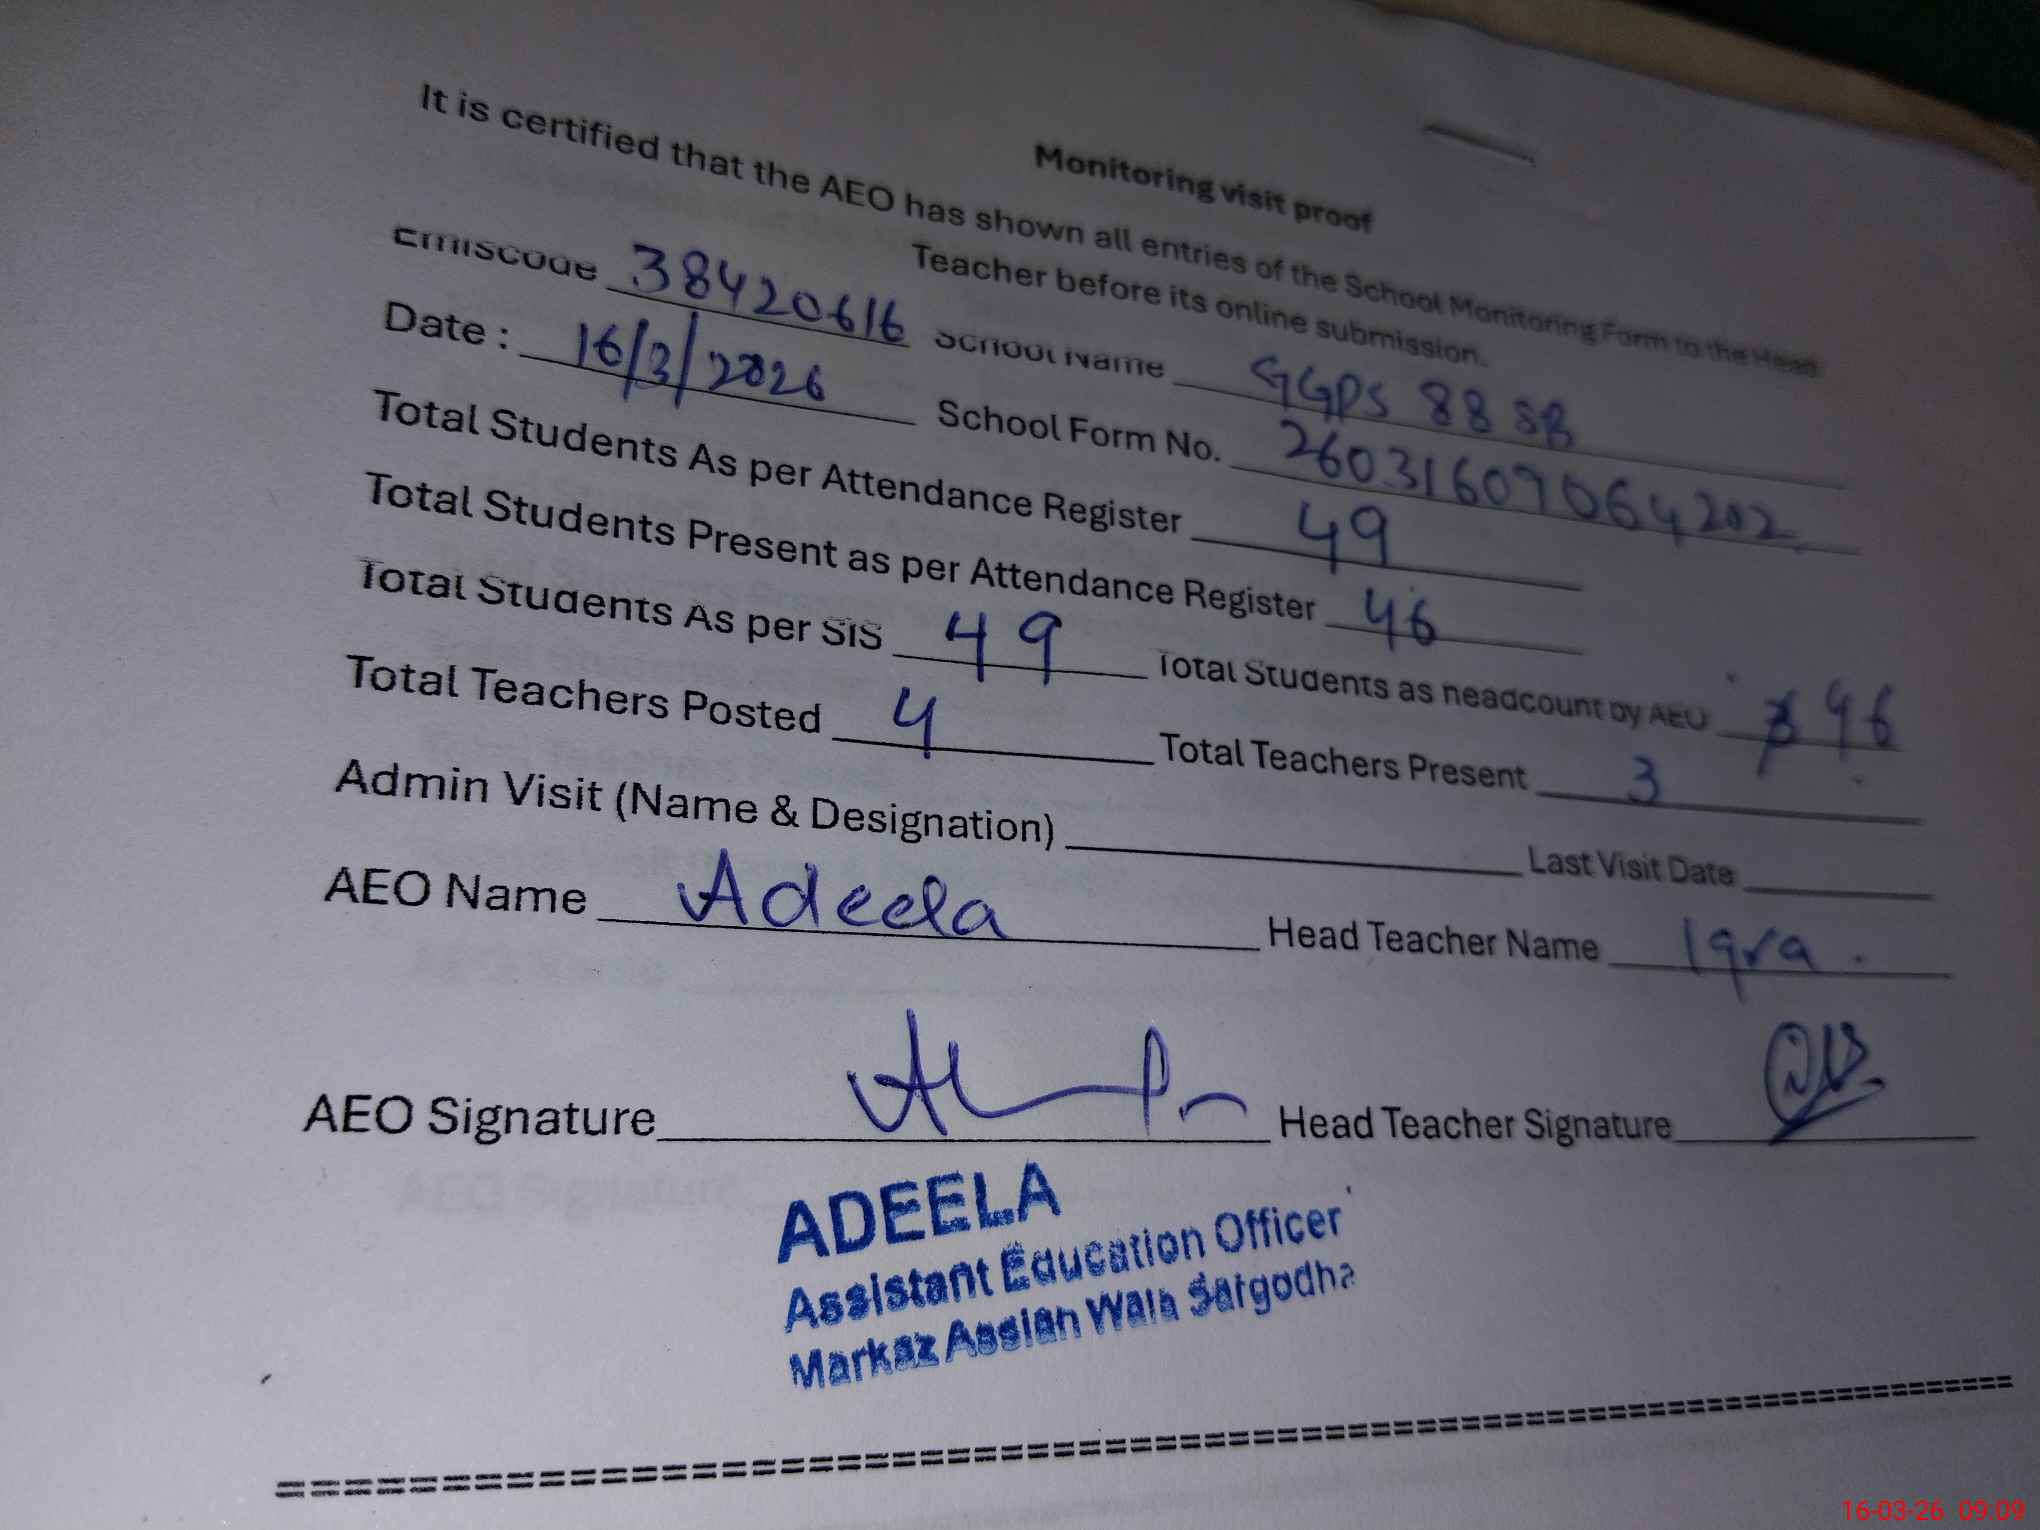 Monitoring visit proof
It is certified that the AEO has shown all entries of the School Monitoring Form to the Head
Teacher before its online submission.
Emiscode 38420616 School Name GGPS 88 SB
Date : 16/3/2026 School Form No. 26031609064202
Total Students As per Attendance Register 49
Total Students Present as per Attendance Register 46
Total Students As per SIS 49 Total Students as headcount by AEO 46
Total Teachers Posted 4 Total Teachers Present 3
Admin Visit (Name & Designation) Last Visit Date
AEO Name Adeela Head Teacher Name Iqra .
AEO Signature Head Teacher Signature
ADEELA
Assistant Education Officer
Markaz Assian Wala Sargodha
16-03-26 09:09